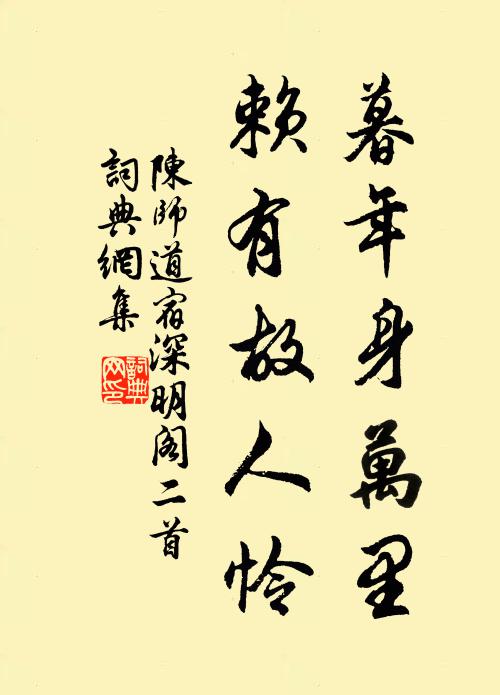 暮年身萬里
賴有故人怜
陳師道宿深明阁二首
詞典網集
詞典
网印